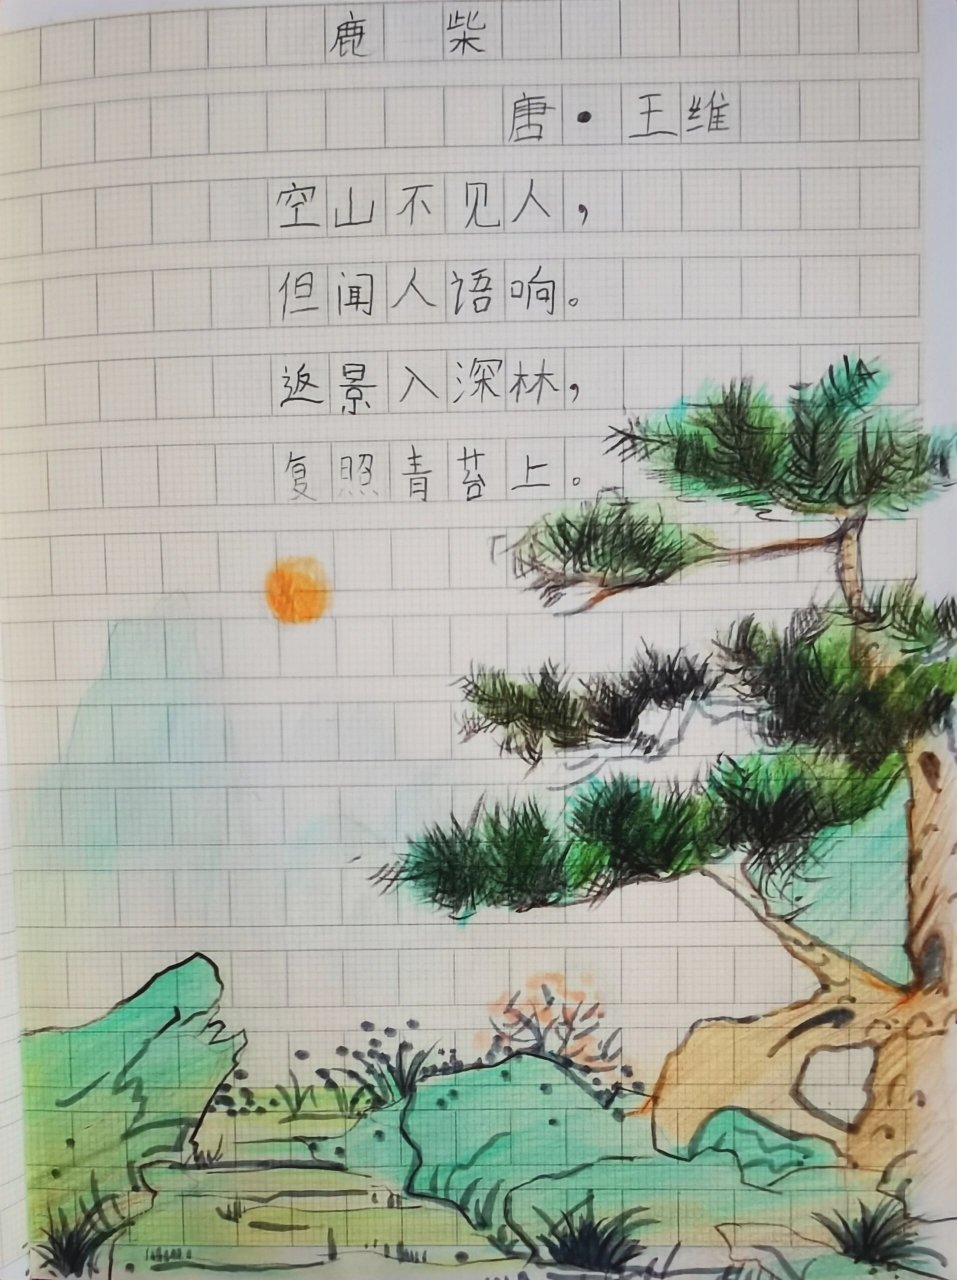 鹿 柴
唐·王维
空山不见人，
但闻人语响。
返景入深林，
复照青苔上。